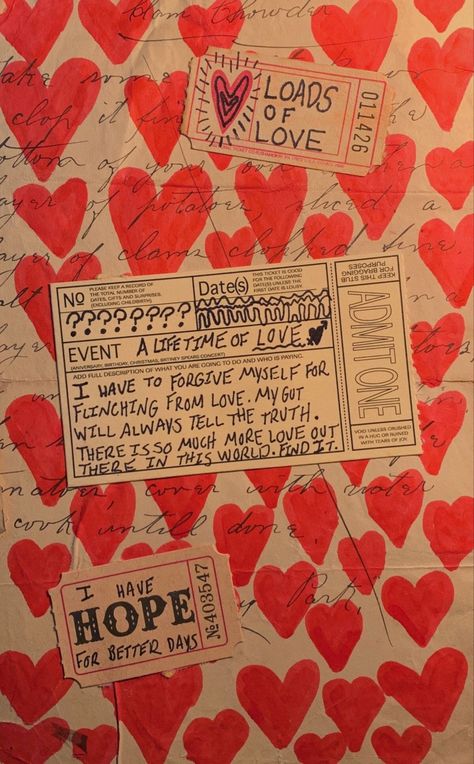 Clam Chowder
LOADS
OF
LOVE
011426
Take some
it fine
of your
layer of potatoes, sliced a
layer of clams
fine
No
PLEASE KEEP A RECORD OF
THE TOTAL NUMBER OF
DATES, GIFTS AND SURPRISES.
(EXCLUDING CHILDBIRTH)
????????
Date(s)
THIS TICKET IS GOOD
FOR THE FOLLOWING
DATE(S) UNLESS THE
FIRST DATE IS LOUSY.
EVENT A LIFETIME OF LOVE
(ANIVERSARY, BIRTHDAY, CHRISTMAS, BRITNEY SPEARS CONCERT)
ADD FULL DESCRIPTION OF WHAT YOU ARE GOING TO DO AND WHO IS PAYING.
I HAVE TO FORGIVE MYSELF FOR
FLINCHING FROM LOVE. MY GUT
WILL ALWAYS TELL THE TRUTH.
THERE IS SO MUCH MORE LOVE OUT
THERE IN THIS WORLD. FIND IT.
KEEP THIS STUB
FOR BRAGGING
PURPOSES
ADMIT ONE
VOID UNLESS CRUSHED
IN A HUG OR RUINED
WITH TEARS OF JOY.
cover with water
cook untill done.
Park."
I HAVE
HOPE
FOR BETTER DAYS
No 403547